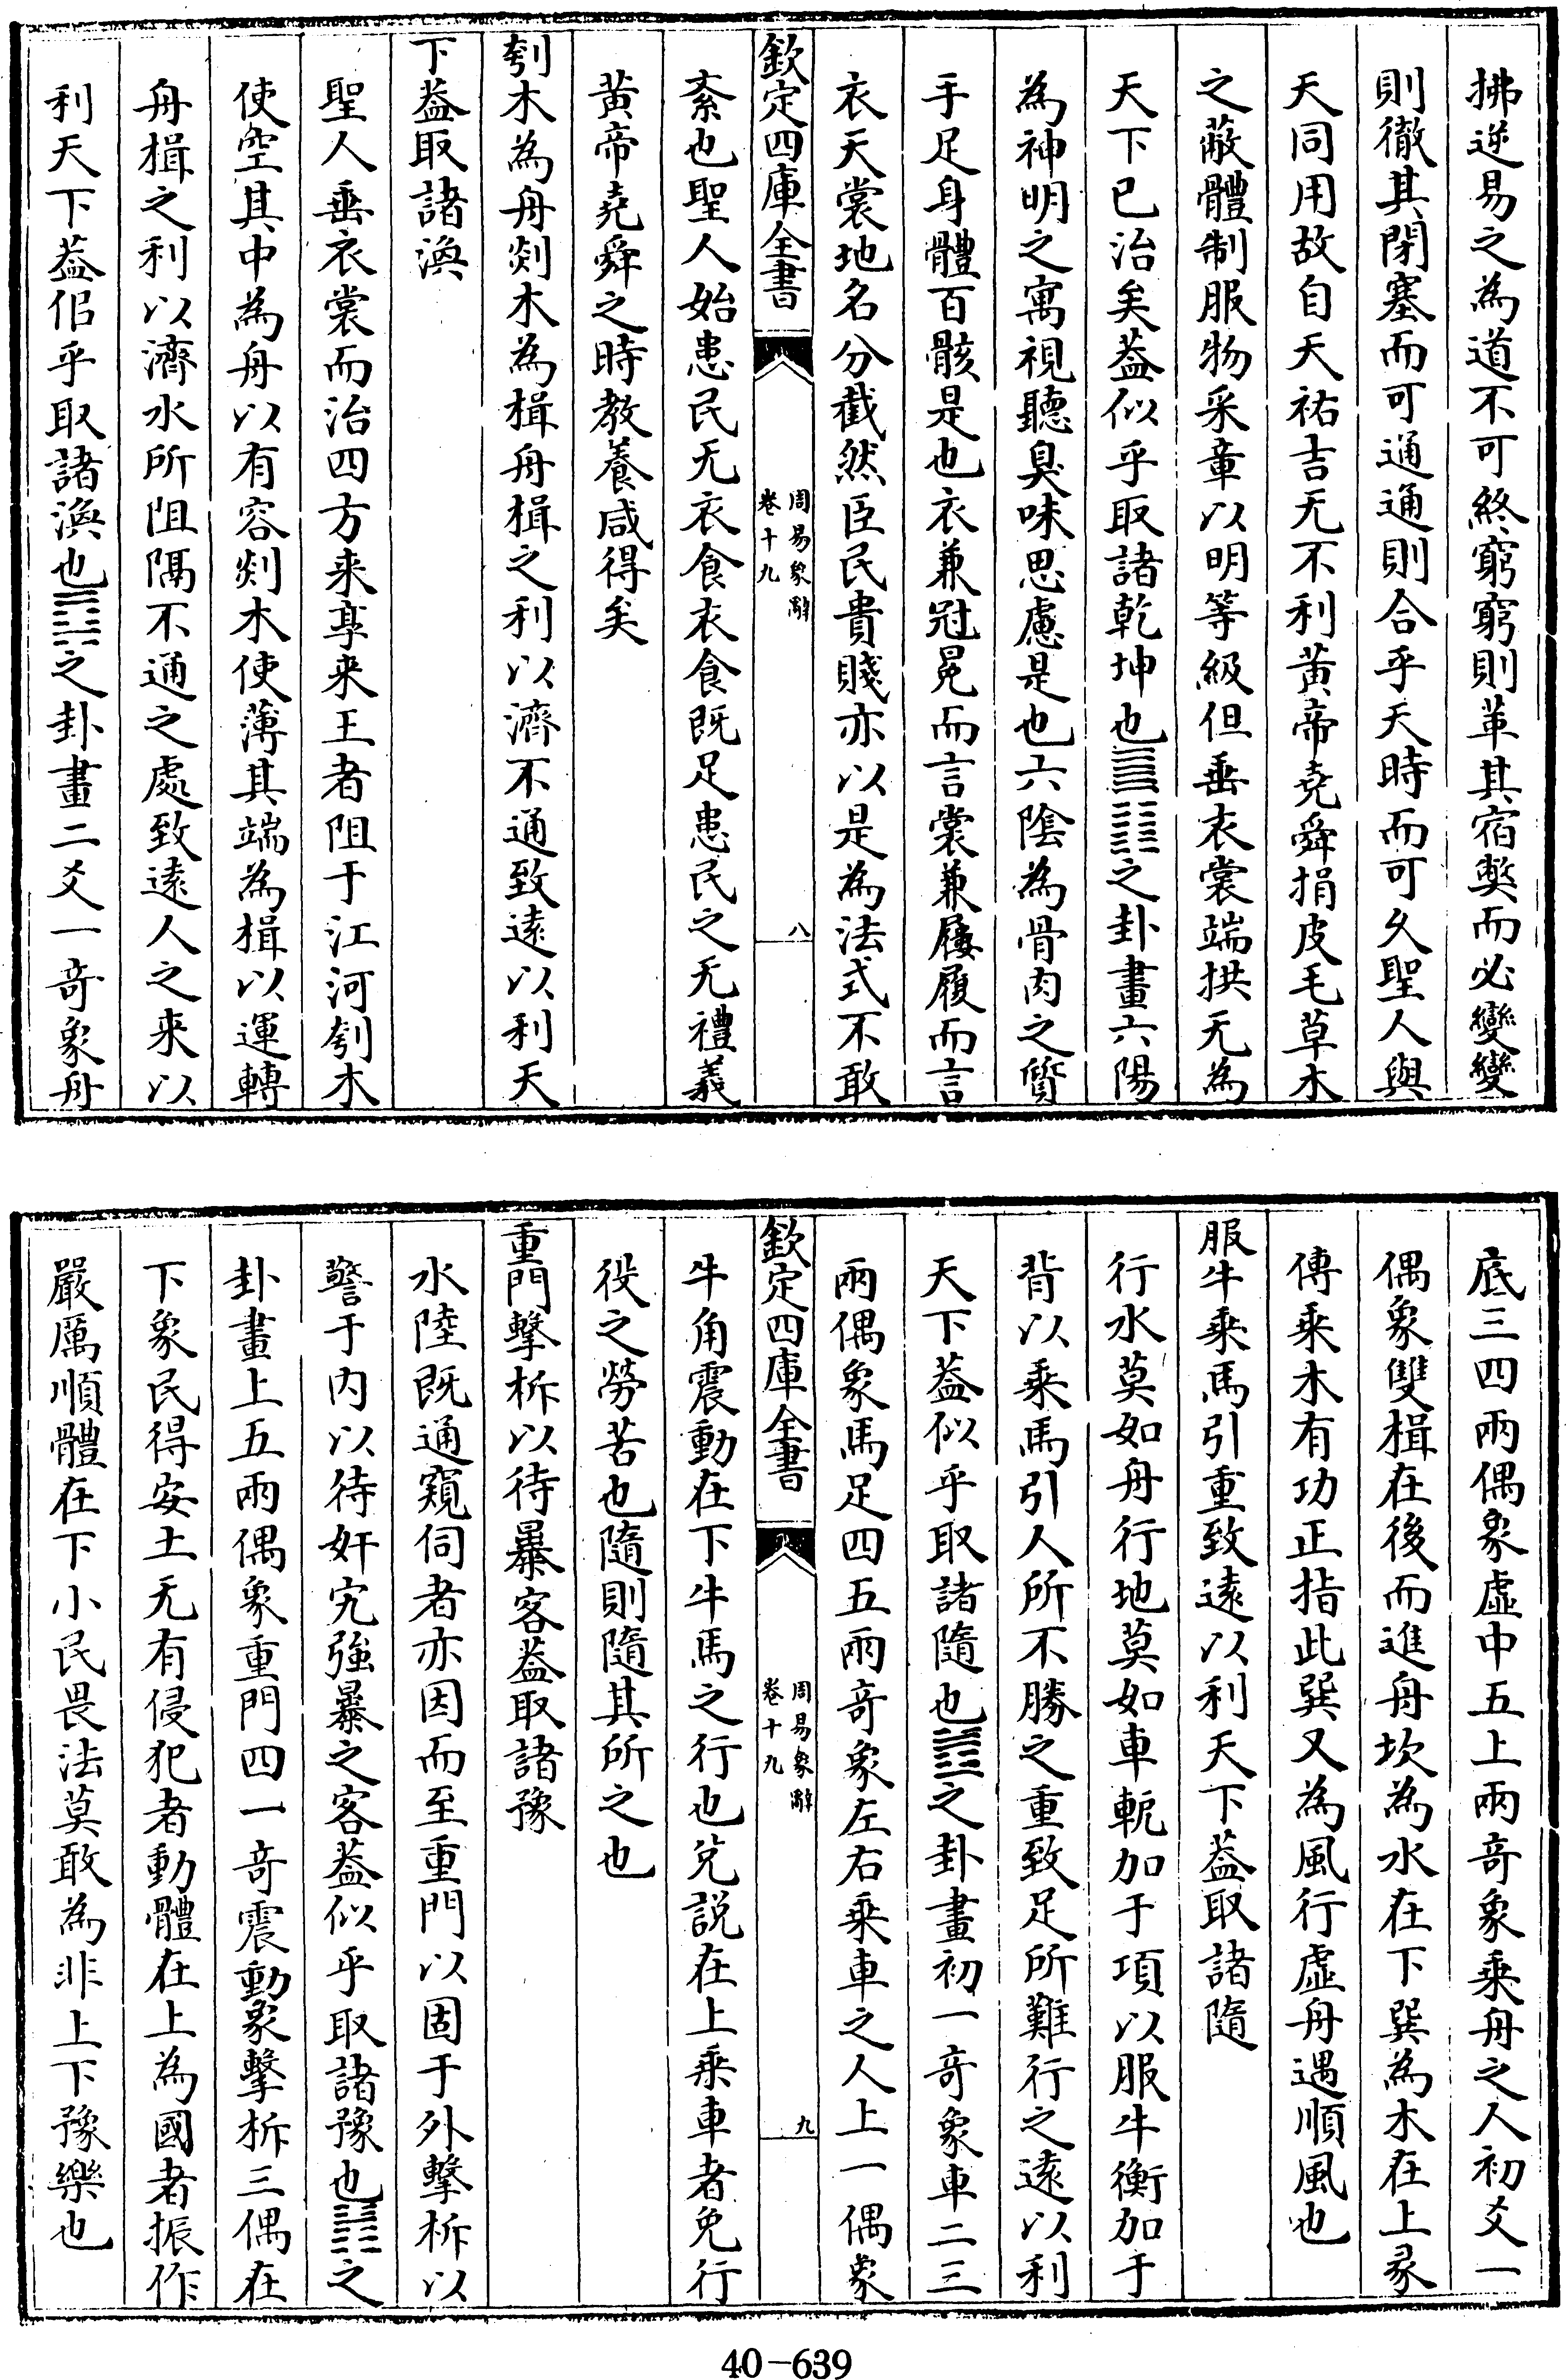 拂逆易之為道不可終窮窮則革其宿獘而必變變
則徹其閉塞而可通通則合乎天時而可久聖人與
天同用故自天祐吉无不利黃帝堯舜捐皮毛草木
之蔽體制服物采章以明等級但垂衣裳端拱无為
天下已治矣葢似乎取諸乾坤也䷀䷁之卦畫六陽
為神明之寓視聽臭味思慮是也六陰為骨肉之質
手足身體百骸是也衣兼冠冕而言裳兼屨履而言
衣天裳地名分截然臣民貴賤亦以是為法式不敢
欽定四庫全書
周易象辭
卷十九
八
紊也聖人始患民无衣食衣食既足患民之无禮義
黃帝堯舜之時教養咸得矣
刳木為舟剡木為楫舟楫之利以濟不通致遠以利天
下葢取諸渙
聖人垂衣裳而治四方来享来王者阻于江河刳木
使空其中為舟以有容剡木使薄其端為楫以運轉
舟楫之利以濟水所阻隔不通之處致遠人之来以
利天下葢佀乎取諸渙也䷺之卦畫二爻一奇象舟
底三四兩偶象虛中五上兩奇象乗舟之人初爻一
偶象雙楫在後而進舟坎為水在下巽為木在上彖
傳乗木有功正指此巽又為風行虛舟遇順風也
服牛乗馬引重致遠以利天下葢取諸隨
行水莫如舟行地莫如車軛加于項以服牛衡加于
背以乗馬引人所不勝之重致足所難行之遠以利
天下葢似乎取諸隨也䷐之卦畫初一奇象車二三
兩偶象馬足四五兩奇象左右乗車之人上一偶象
欽定四庫全書
周易象辭
卷十九
九
牛角震動在下牛馬之行也兊説在上乗車者免行
役之勞苦也隨則隨其所之也
重門擊柝以待暴客葢取諸豫
水陸既通窺伺者亦因而至重門以固于外擊柝以
警于内以待奸宄強暴之客葢似乎取諸豫也䷏之
卦畫上五兩偶象重門四一奇震動象擊柝三偶在
下象民得安土无有侵犯者動體在上為國者振作
嚴厲順體在下小民畏法莫敢為非上下豫樂也
40-639